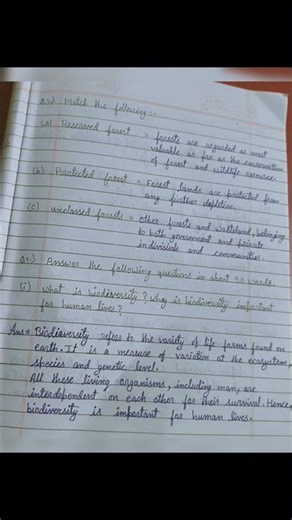 Qu) Match the following :-
(a) Reserved forest = forests are regarded as most
valuable as far as the conservation
of forest and wildlife resource
(b) Protected forest = Forest lands are protected from
any further depletion.
(c) unclassed forests = other forests and wasteland, belonging
to both government and private
individuals and communities.
Qu) Answer the following questions in about 30 words.
(i) what is biodiversity? why is biodiversity important
for human lives?
Ans = Biodiversity refers to the variety of life forms found on
earth. It is a measure of variation at the ecosystem,
species and genetic level.
All these living organisms, including man, are
interdependent on each other for their survival. Hence,
biodiversity is important for human lives.